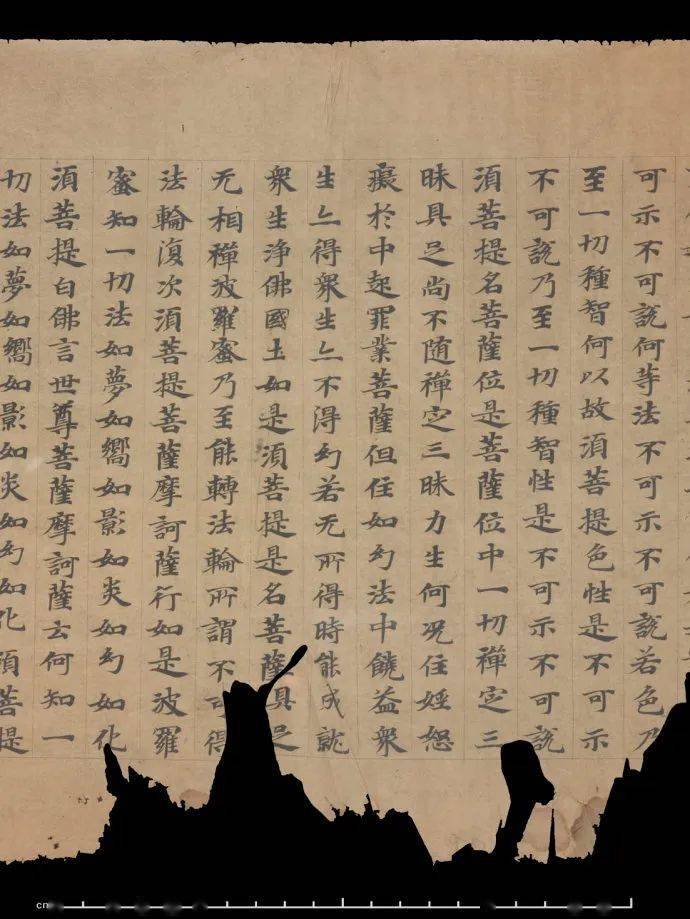 可示不可說何等法不可示不可說若色乃
至一切種智何以故須菩提色性是不可示
不可說乃至一切種智性是不可示不可說
須菩提名菩薩位是菩薩位中一切禪㝎三
昧具足尚不随禪㝎三昧力生何况住婬怒
癡於中起罪業菩薩但住如幻法中饒益衆
生亦得衆生亦不得幻若无所得時能成就
衆生淨佛國土如是須菩提是名菩薩具足
无相禪波羅蜜乃至能轉法輪所謂不可得
法輪復次須菩提菩薩摩訶薩行如是波羅
蜜知一切法如夢如嚮如影如炎如幻如化
須菩提白佛言世尊菩薩摩訶薩云何知一
切法如夢如嚮如影如炎如幻如化須菩提
cm